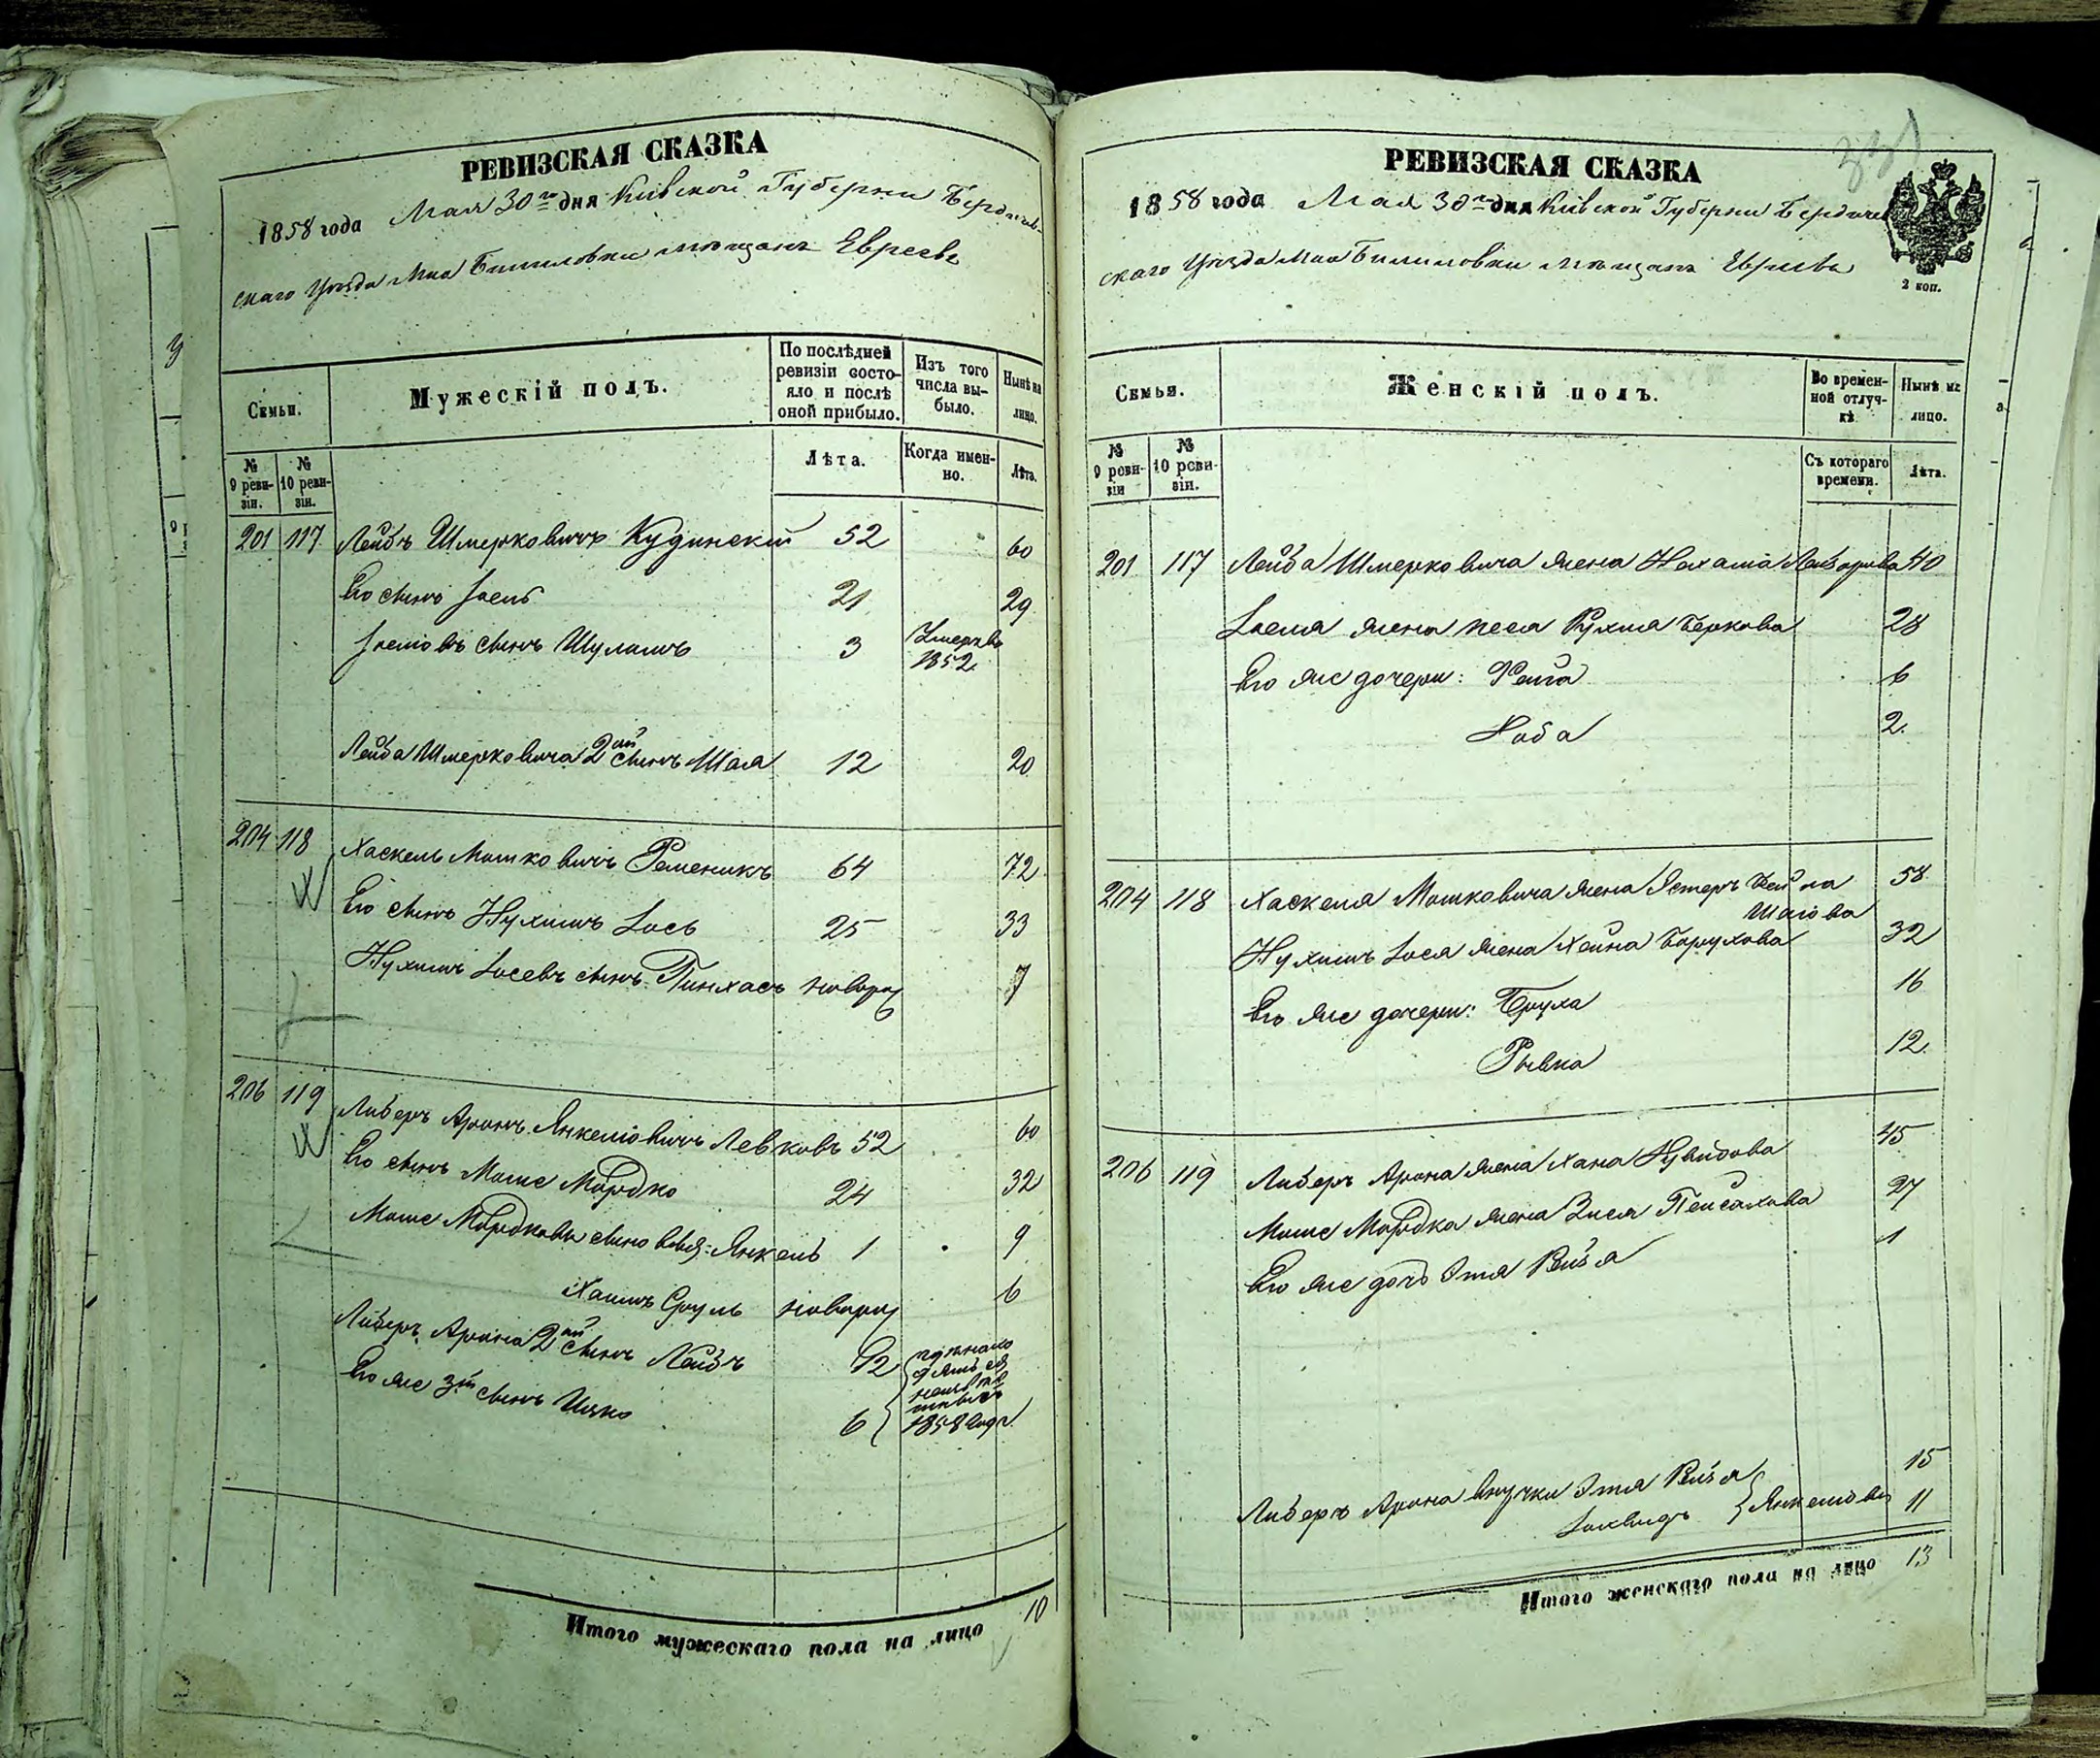 РЕВИЗСКАЯ СКАЗКА
1858 года Мая 30го дня Киевской Губернии Бердичев-
скаго Уѣзда Мка Билиловки мѣщанъ Евреевъ
Семьи.
Мужескій полъ.
По послѣдней ревизіи состо-яло и послѣ оной прибыло.
Изъ того числа вы-было.
Нынѣ на лицо.
№ 9 реви-зіи.
№ 10 реви-зіи.
Лѣта.
Когда имен-но.
Лѣта.
201 117 Лейбъ Шмерковичъ Кудинскій 52 60
Его сынъ Іосль 21 29
Іосліовъ сынъ Шулимъ 3 Умеръ въ 1852.
Лейба Шмерковича 2ой сынъ Шая 12 20
204 118 Хаскель Мошковичъ Ременикъ 64 72
Его сынъ Нухимъ Іось 25 33
Нухимъ Іосевъ сынъ Пинхасъ новорож 7
206 119 Либеръ Аронъ Янкеліовичъ Левковъ 52 60
Его сынъ Моше Мордко 24 32
Моше Мордковы сыновья: Янкель 1 9
Хаимъ Сруль новорож 6
Либеръ Арона 2ой сынъ Лейбъ 12
Его же 3й сынъ Ицко 6
1858 года.
Итого мужескаго пола на лицо 10
331
РЕВИЗСКАЯ СКАЗКА
1858 года Мая 30го дня Киевской Губернии Бердичев
скаго Уѣзда Мка Билиловки мѣщанъ Евреевъ
2 коп.
Семьи.
Женскій полъ.
Во времен-ной отлуч-кѣ
Нынѣ на лицо.
№ 9 реви-зіи
№ 10 реви-зіи.
Съ котораго времени.
Лѣта.
201 117 Лейба Шмерковича жена Нехама Лейзорова 40
Іосля жена Песя Рухля Беркова 28
Его же дочери: Фейга 6
Хаба 2.
204 118 Хаскеля Мошковича жена Эстеръ Бейла 58
Шаіова
Нухимъ Іося жена Хейна Борухова 32
Его же дочери: Бруха 16
Рывка 12.
206 119 Либеръ Арона жена Хана 45
Моше Мордка жена Зися Пейсахова 27
Его же дочь Этя Рейзя 1
Либеръ Арона внучки Этя Рейзя 15
Янкеліовы 11
Итого женскаго пола на лицо 13